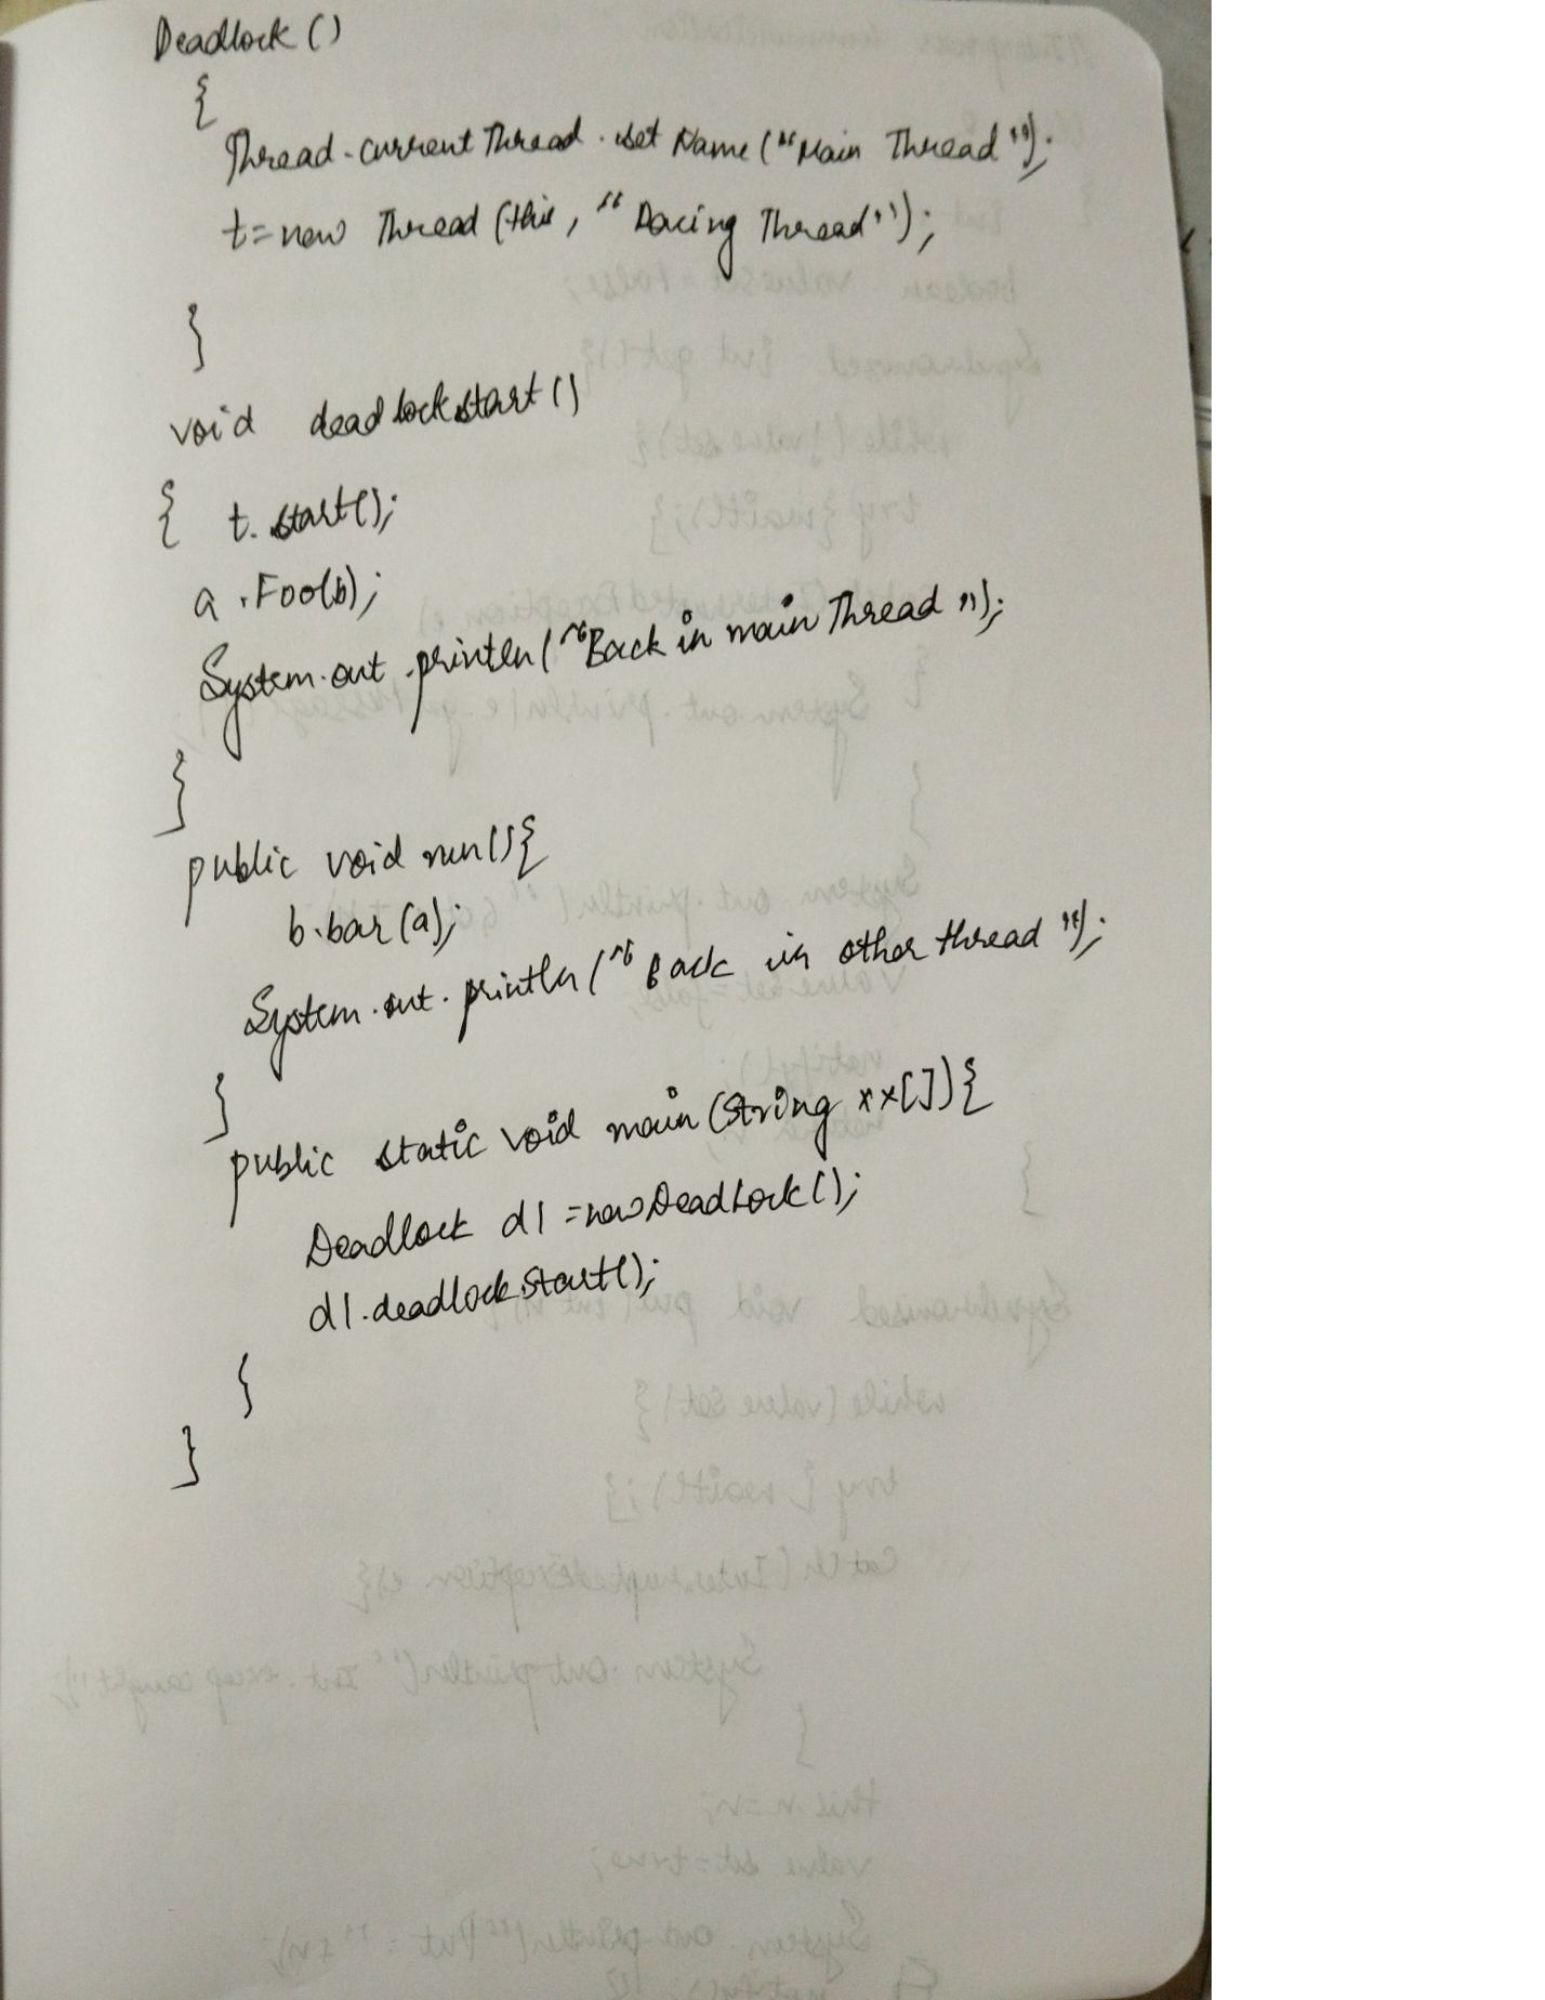 Deadlock ()
{
Thread.currentThread.set Name ("Main Thread");
t=new Thread (this, "Dacing Thread");
}
void deadlockstart ()
{ t. start();
a .Foo(b);
System.out.println("Back in main Thread");
}
public void run(){
b.bar (a);
System.out.println("Back in other thread");
}
public static void main (String xx[]){
Deadlock dl =newDeadLock();
dl.deadlockstart();
}
}